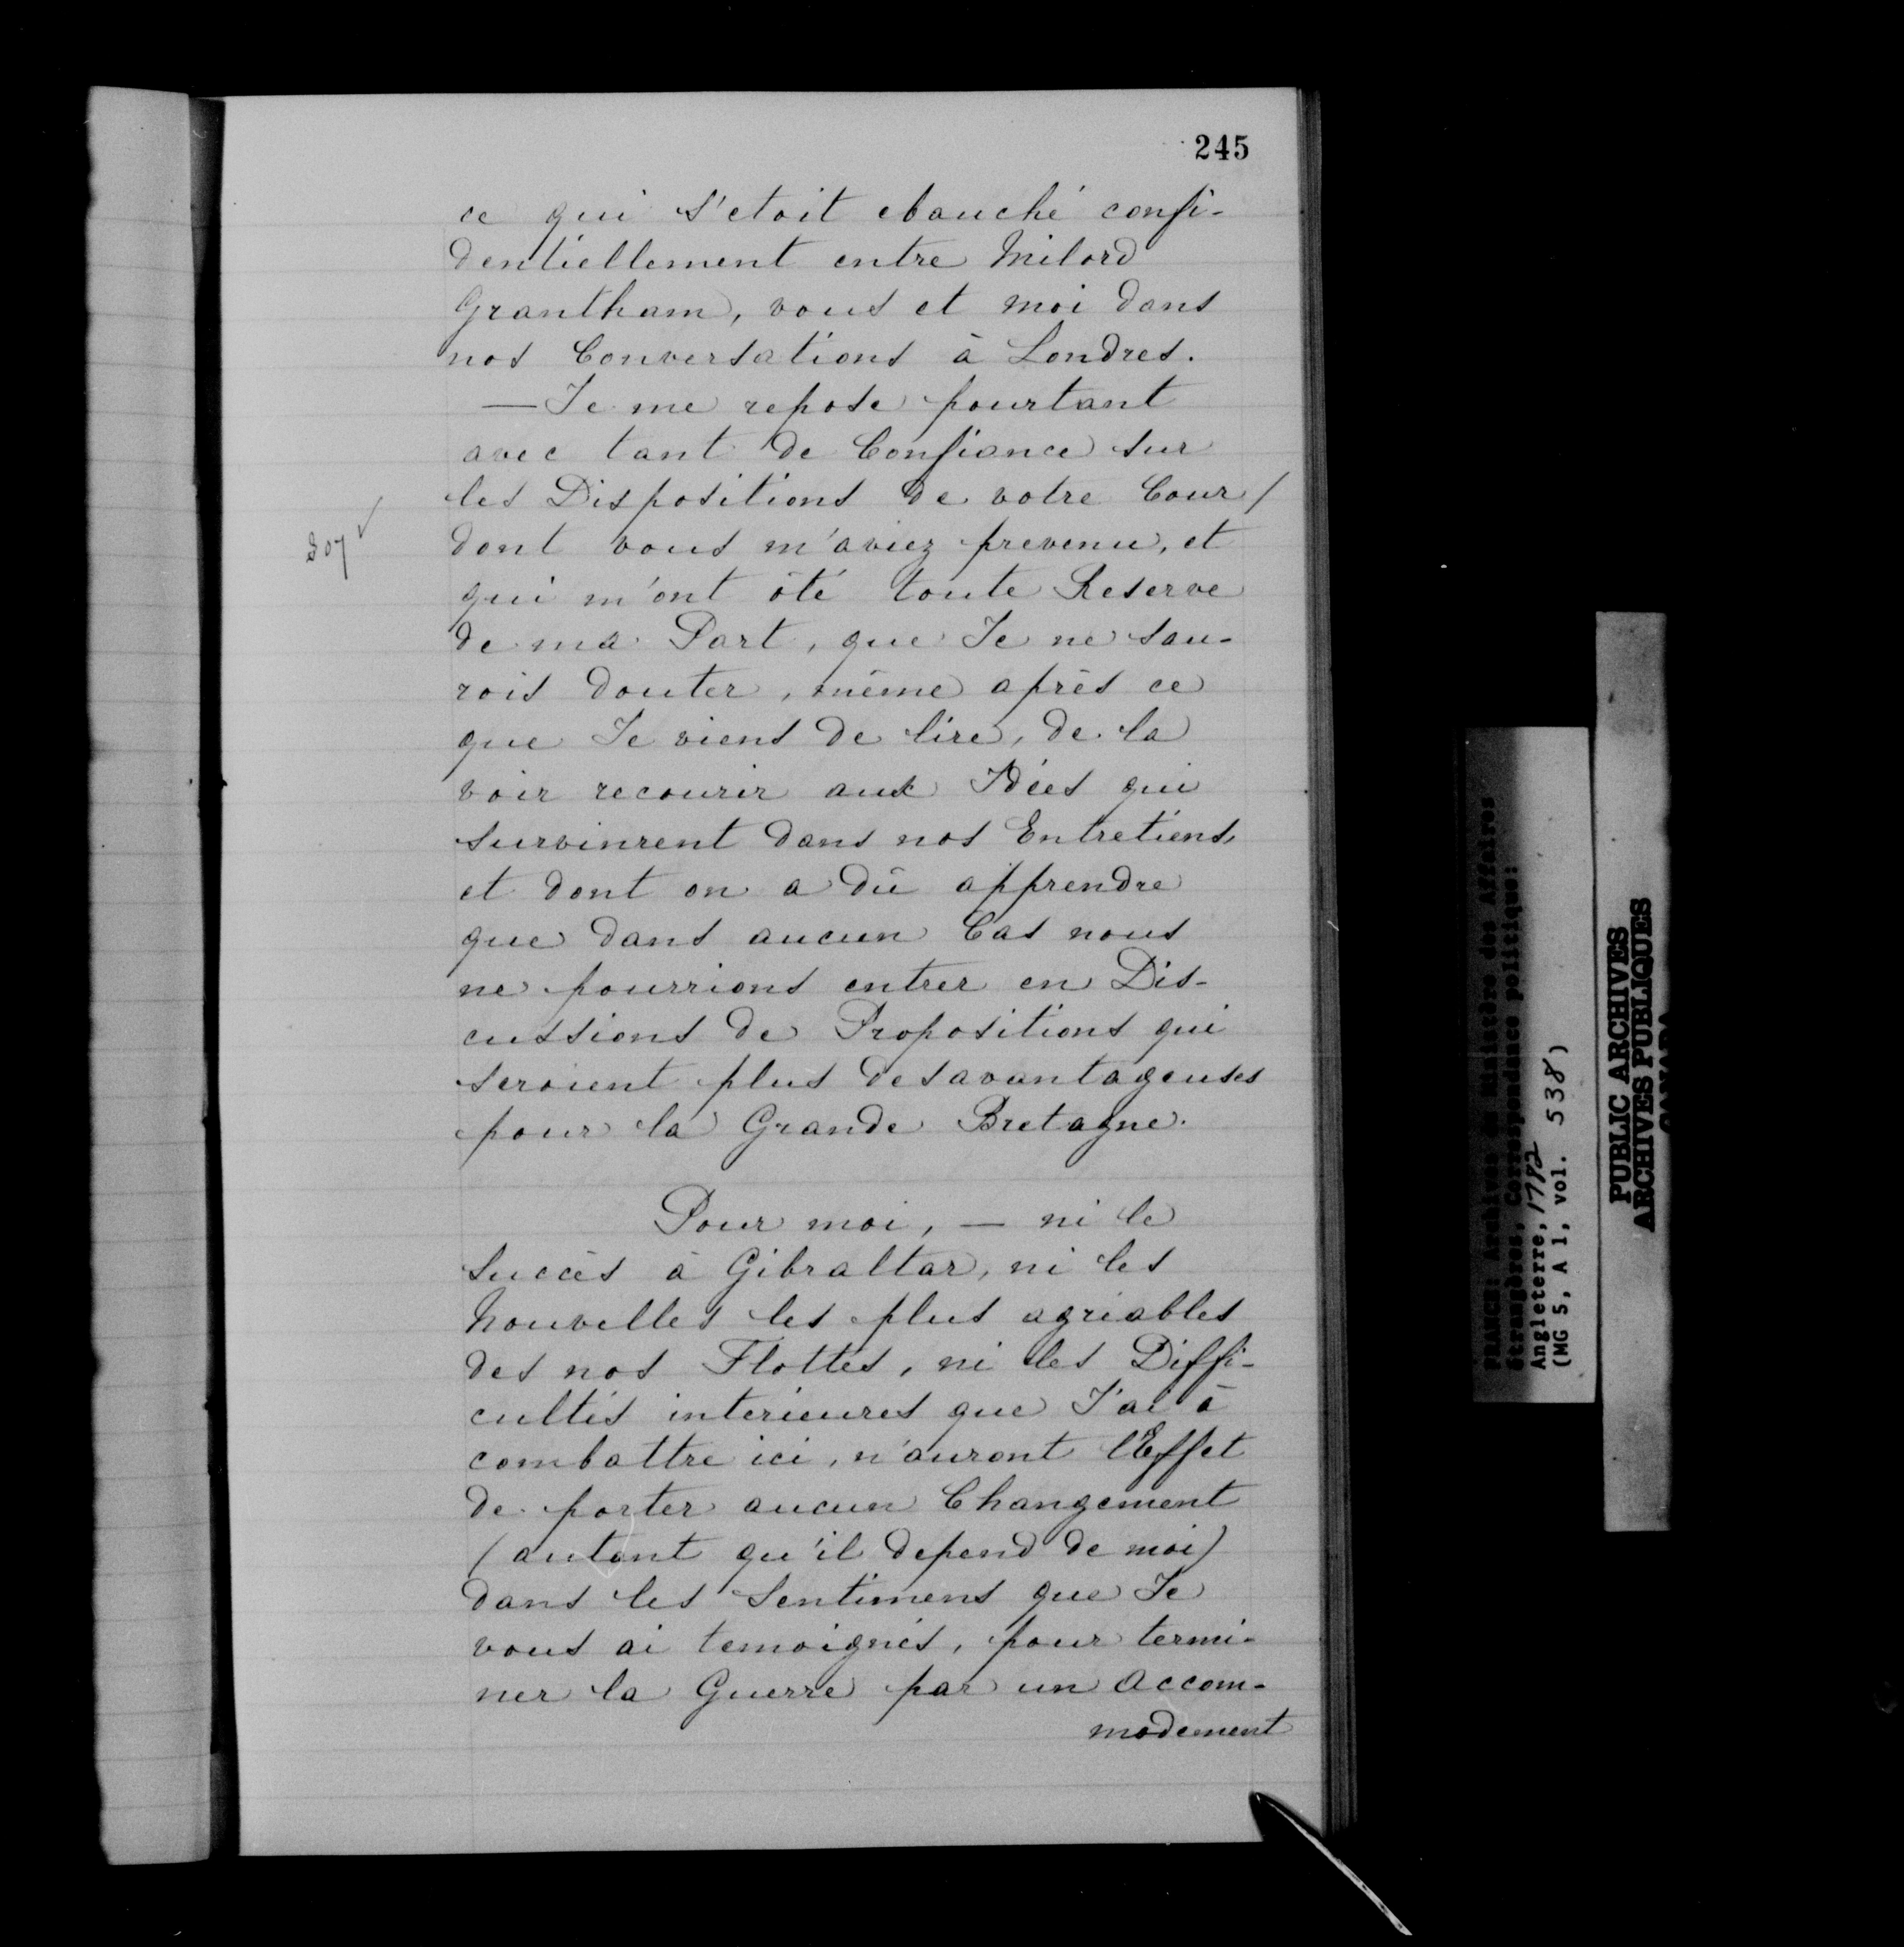 245
ce qui s'etoit ebauché confi-
dentiellement entre Milord
Grantham, vous et moi dans
nos Conversations à Londres.
— Je me repose pourtant
avec tant de Confiance sur
les Dispositions de votre Cour /
dont vous m'aviez prevenu, et
qui m'ont ôté toute Reserve
de ma Part, que Je ne sau-
rois douter, même après ce
que Je viens de lire, de la
voir recourir aux Idées qui
survinrent dans nos Entretiens,
et dont on a dû apprendre
que dans aucun Cas nous
ne pourrions entrer en Dis-
cussions de Propositions qui
seroient plus desavantageuses
pour la Grande Bretagne.
Pour moi, — ni le
Succès à Gibraltar, ni les
Nouvelles les plus agréables
des nos Flottes, ni les Diffi-
cultés interieures que J'ai à
combattre ici, n'auront l'Effet
de porter aucun Changement
(autant qu'il depend de moi)
dans les Sentimens que Je
vous ai temoignés, pour termi-
ner la Guerre par un Accom-
modement
207 ✓
FRANCE: Archives du Ministère des Affaires
Étrangères, Correspondance politique:
Angleterre, 1782
(MG 5, A 1, vol. 538)
PUBLIC ARCHIVES
ARCHIVES PUBLIQUES
CANADA